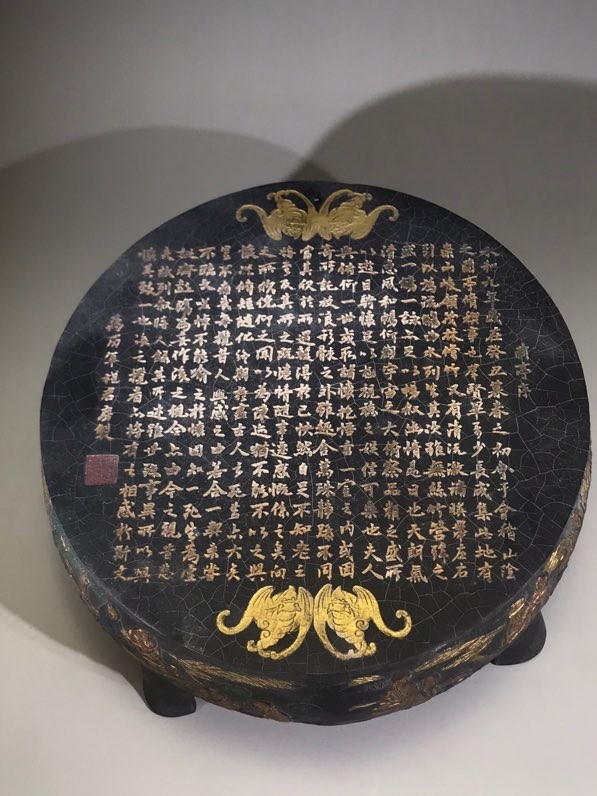 蘭亭序
永和九年歲在癸丑暮春之初會于會稽山陰
之蘭亭脩禊事也羣賢畢至少長咸集此地有
崇山峻領茂林脩竹又有清流激湍暎帶左右
引以為流觴曲水列坐其次雖無絲竹管弦之
盛一觴一詠亦足以暢敘幽情是日也天朗氣
清惠風和暢仰觀宇宙之大俯察品類之盛所
以遊目騁懷足以極視聽之娛信可樂也夫人
與俯仰一世或取諸懷抱悟言一室之內或因
寄所託放浪形骸之外雖趣舍萬殊靜躁不同
當其欣於所遇蹔得於己快然自足不知老之
將至及其所之既惓情隨事遷感慨係之矣向
之所欣俛仰之間以為陳迹猶不能不以之興
懷況脩短隨化終期於盡古人云死生亦大矣
豈不痛哉每攬昔人興感之由若合一契未嘗
不臨文嗟悼不能喻之於懷固知一死生為虛
誕齊彭殤為妄作後之視今亦由今之視昔悲
夫故列敘時人錄其所述雖世殊事異所以興
懷其致一也後之攬者亦將有感於斯文
萬历年程君房製